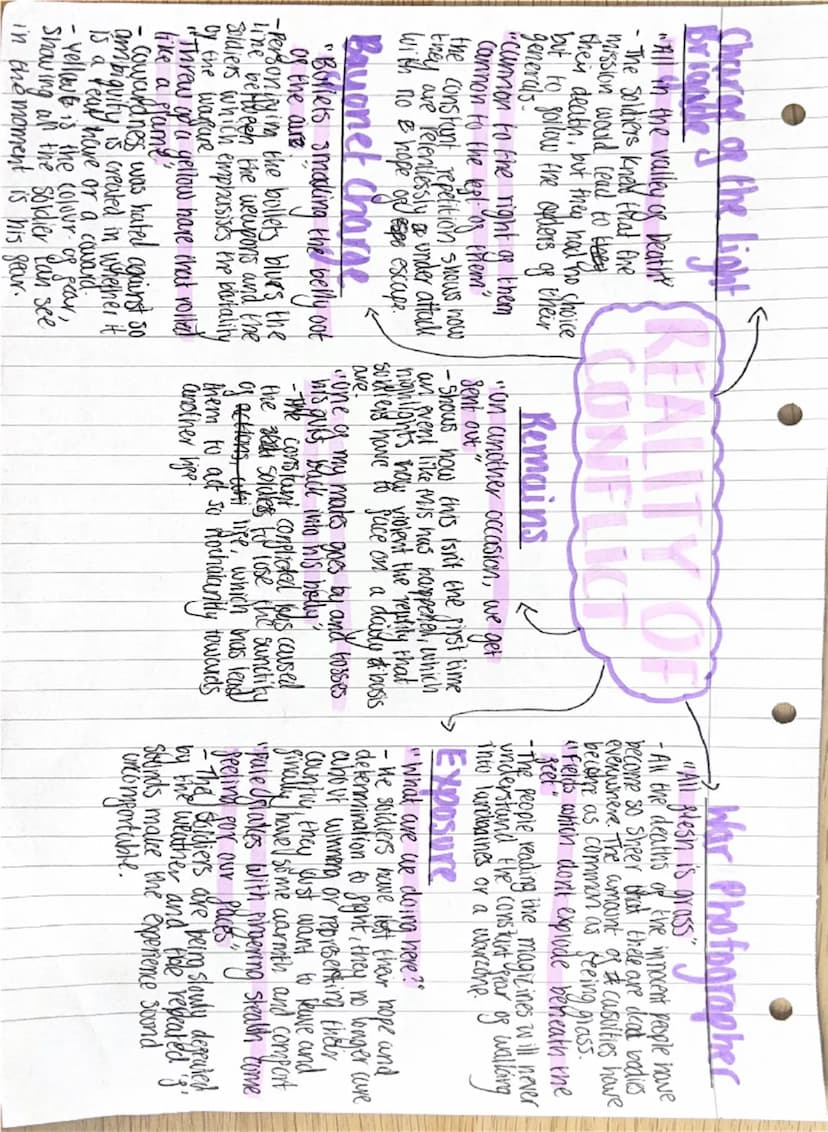 REALITY OF
CONFLICT
Charge of the Light
Brigade
"All in the valley of Death"
- The soldiers knew that the
mission would lead to
their death, but they had no choice
but to follow the orders of their
generals.
"Cannon to the right of them
Cannon to the left of them"
the constant repetition shows how
they are relentlessly under attack
with no hope of escape.
Bayonet Charge
"Bullets smacking the belly out
of the air."
- Personifying the bullets blurs the
line between the weapons and the
soldiers which emphasises the brutality
of the warfare
"Threw up a yellow hare that rolled
like a flame"
- Cowardness was hated against so
ambiguity is created in whether it
is a real hare or a coward.
- yellow is the colour of fear,
showing all the soldier can see
in the moment is his fear.
Remains
"On another occasion, we get
sent out"
- Shows how this isn't the first time
an event like this has happened which
highlights how violent the reality that
soldiers have to face on a daily basis
are.
"One of my mates goes by and tosses
his guts back into his body"
- constant conflicted has caused
the soldiers to lose the sanctity
of life, which has lead
them to act so nonchalantly towards
another life.
War Photographer
"All flesh is grass"
- All the deaths of the innocent people have
become so sheer that there are dead bodies
everywhere. The amount of casulties have
become as common as seeing grass.
"Fields which dont explode beneath the
feet"
- The people reading the magizines will never
understand the constant fear of walking
into landmines or a warzone.
Exposure
"What are we doing here?"
- He soldiers have lost their hope and
determination to fight, they no longer care
about winning or representing their
country, they just want to leave and
finally have some warmth and comfort
"pale flakes with fingering stealth come
feeling for our faces"
- The soldiers are being slowly defeated
by the weather and the repeated 'f'
sounds make the experience sound
uncomfortable.